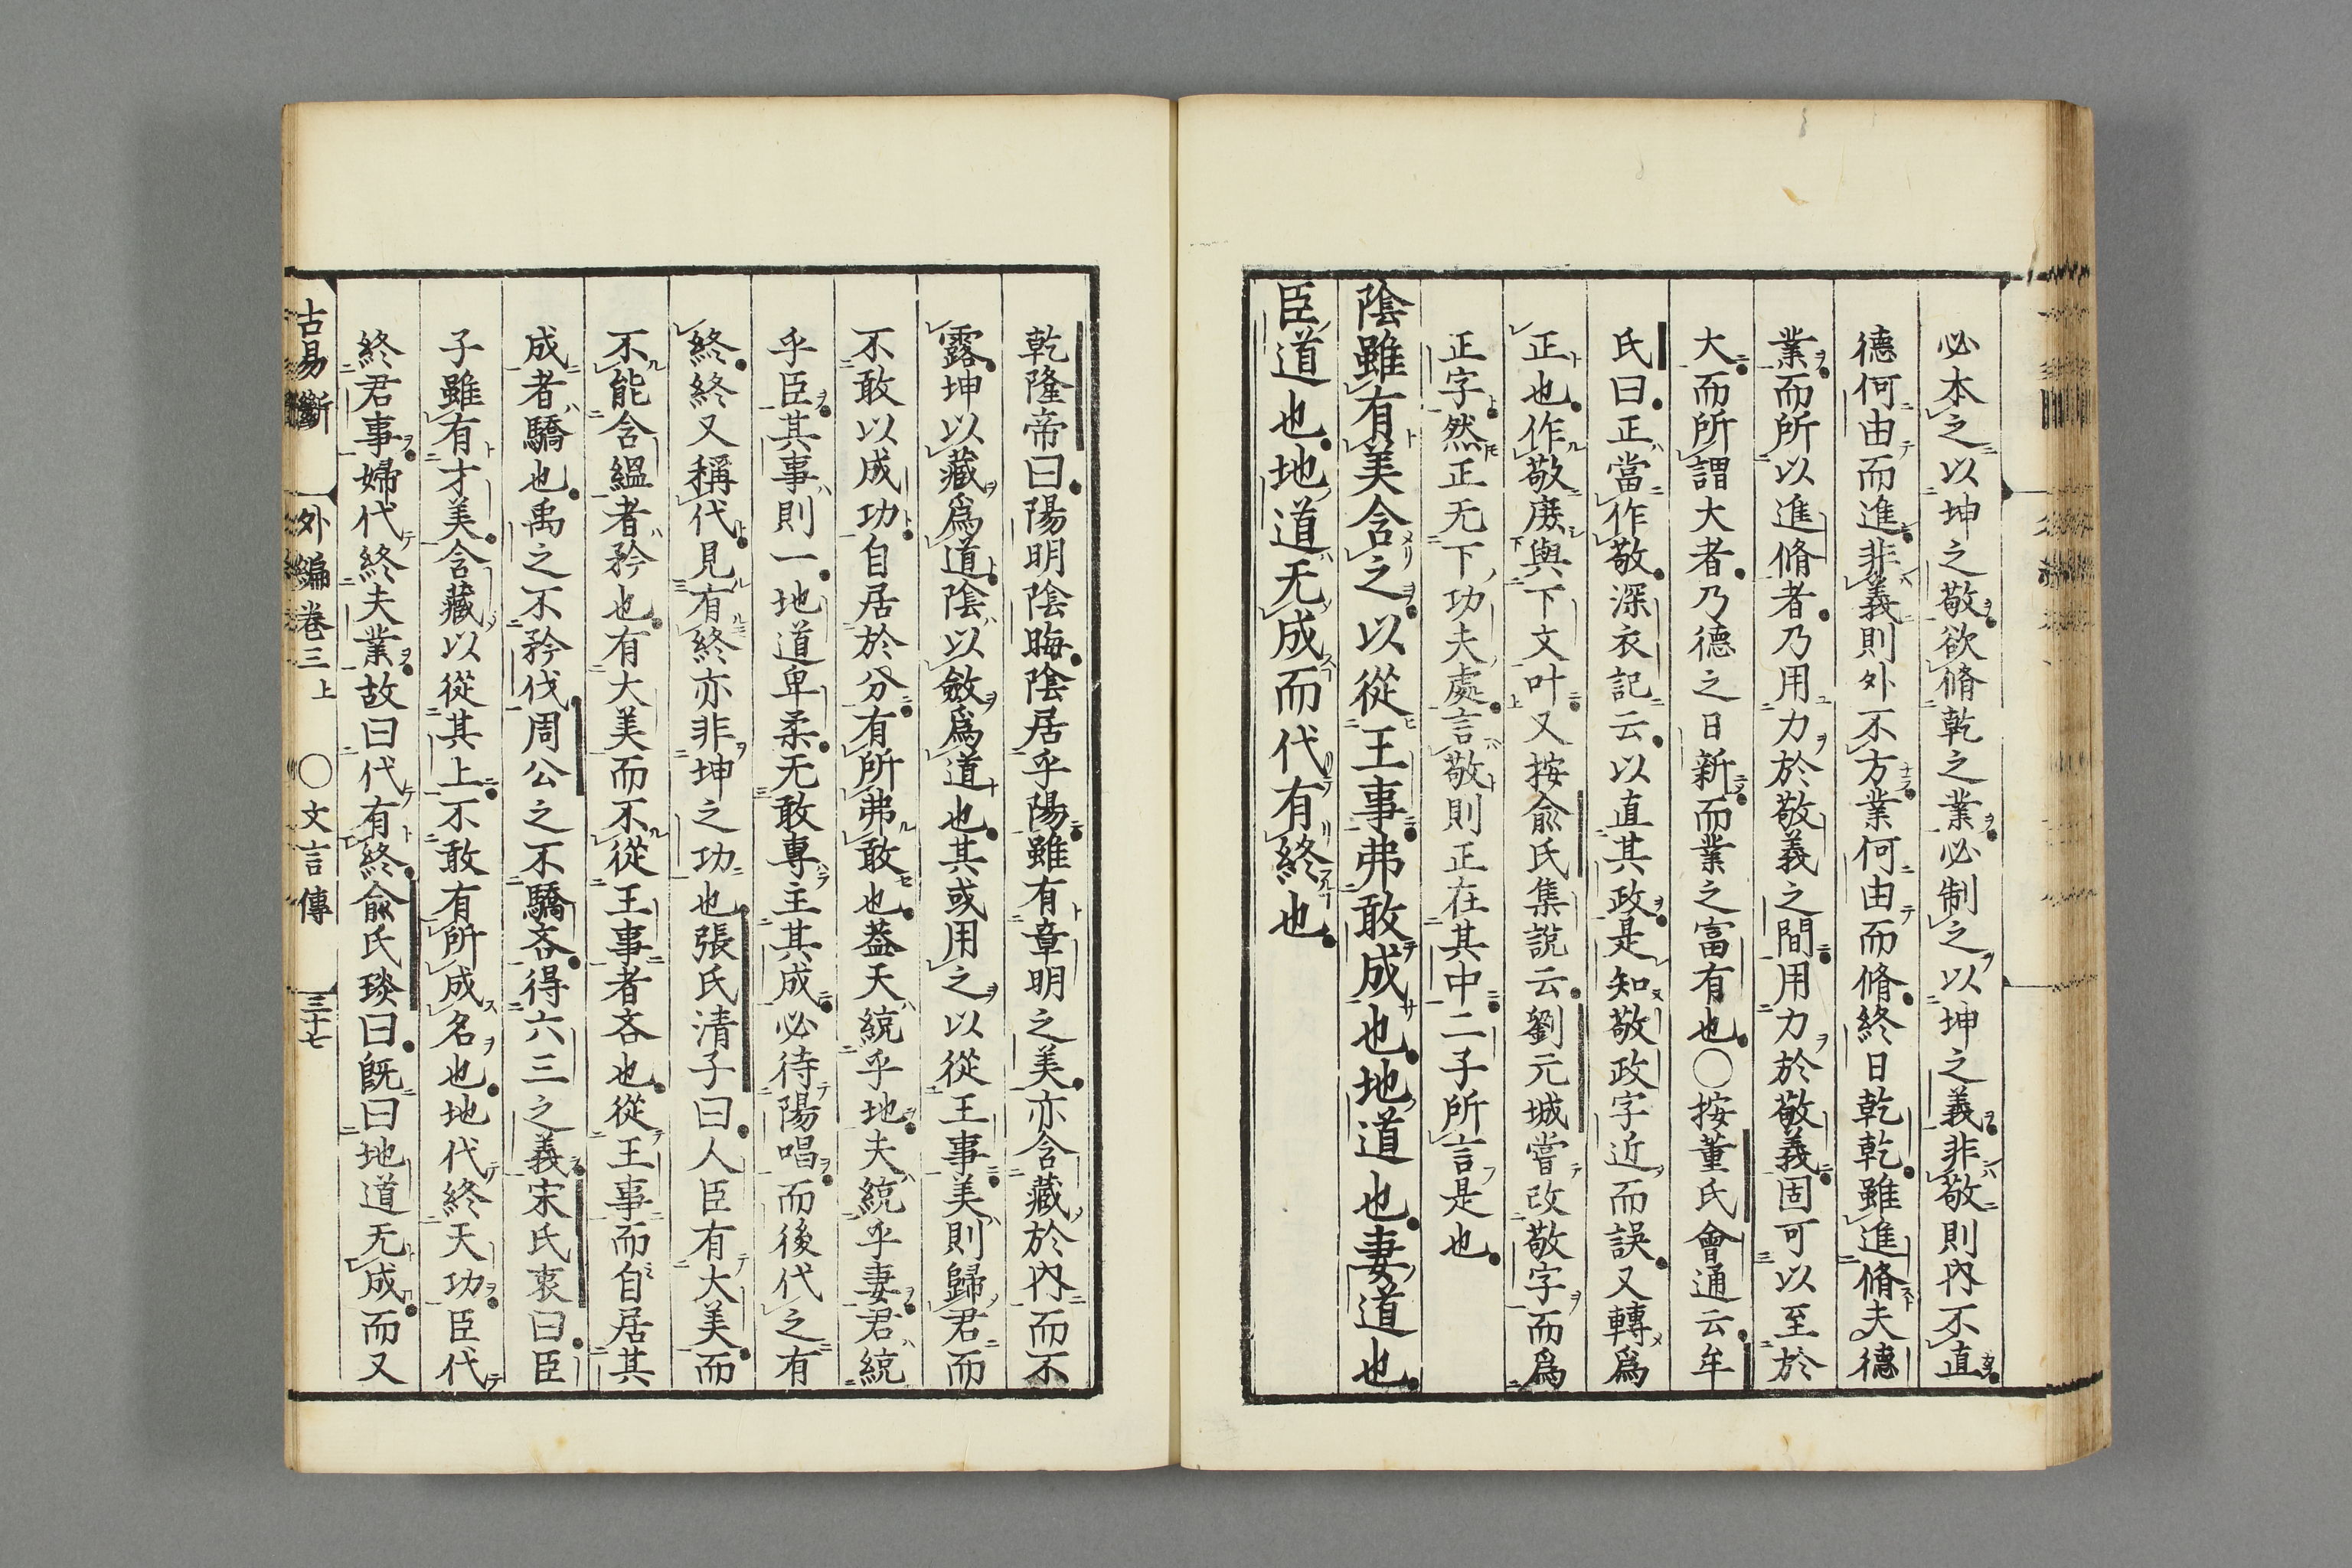 必本之以坤之敬欲脩乾之業必制之以坤之義非敬則內不直
德何由而進非義則外不方業何由而脩終日乾乾雖進脩夫德
業而所以進脩者乃用力於敬義之間用力於敬義固可以至於
大而所謂大者乃德之日新而業之富有也○按董氏會通云牟
氏曰正當作敬深衣記云以直其政是知敬政字近而誤又轉爲
正也作敬庶與下文叶又按俞氏集說云劉元城嘗改敬字而爲
正字然正无下功夫處言敬則正在其中二子所言是也
陰雖有美含之以從王事弗敢成也地道也妻道也
臣道也地道无成而代有終也
乾隆帝曰陽明陰晦陰居乎陽雖有章明之美亦含藏於內而不
露坤以藏爲道陰以斂爲道也其或用之以從王事美則歸君而
不敢以成功自居於分有所弗敢也葢天統乎地夫統乎妻君統
乎臣其事則一地道卑柔无敢專主其成必待陽唱而後代之有
終終又稱代見有終亦非坤之功也張氏清子曰人臣有大美而
不能含緼者矜也有大美而不從王事者吝也從王事而自居其
成者驕也禹之不矜伐周公之不驕吝得六三之義宋氏衷曰臣
子雖有才美含藏以從其上不敢有所成名也地代終天功臣代
終君事婦代終夫業故曰代有終俞氏琰曰旣曰地道无成而又
古易斷 外編卷三上 ○文言傳 三十七